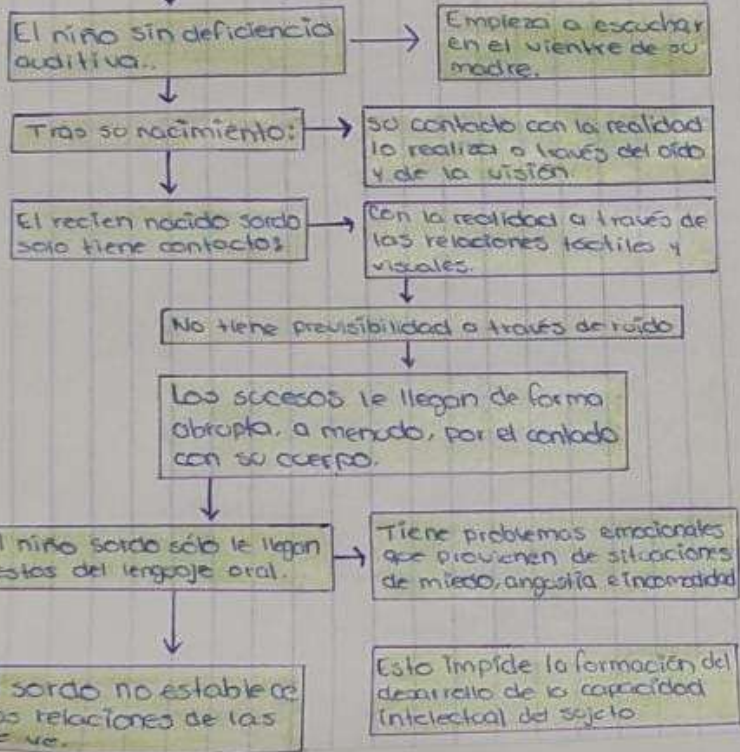 El niño sin deficiencia
auditiva..
Empieza a escuchar
en el vientre de su
madre.
Tras su nacimiento:
su contacto con la realidad
lo realiza a través del oído
y de la visión.
El recien nacido sordo
solo tiene contactos
con la realidad a través de
las relaciones táctiles y
visuales.
No tiene previsibilidad a través de ruido
Los sucesos le llegan de forma
abrupta, a menudo, por el contacto
con su cuerpo.
niño sordo sólo le llegan
del lenguaje oral.
Tiene problemas emocionales
que provienen de situaciones
de miedo, angustia e incomodidad
sordo no establece
relaciones de las
ve.
Esto impide la formación del
desarrollo de la capacidad
intelectual del sujeto